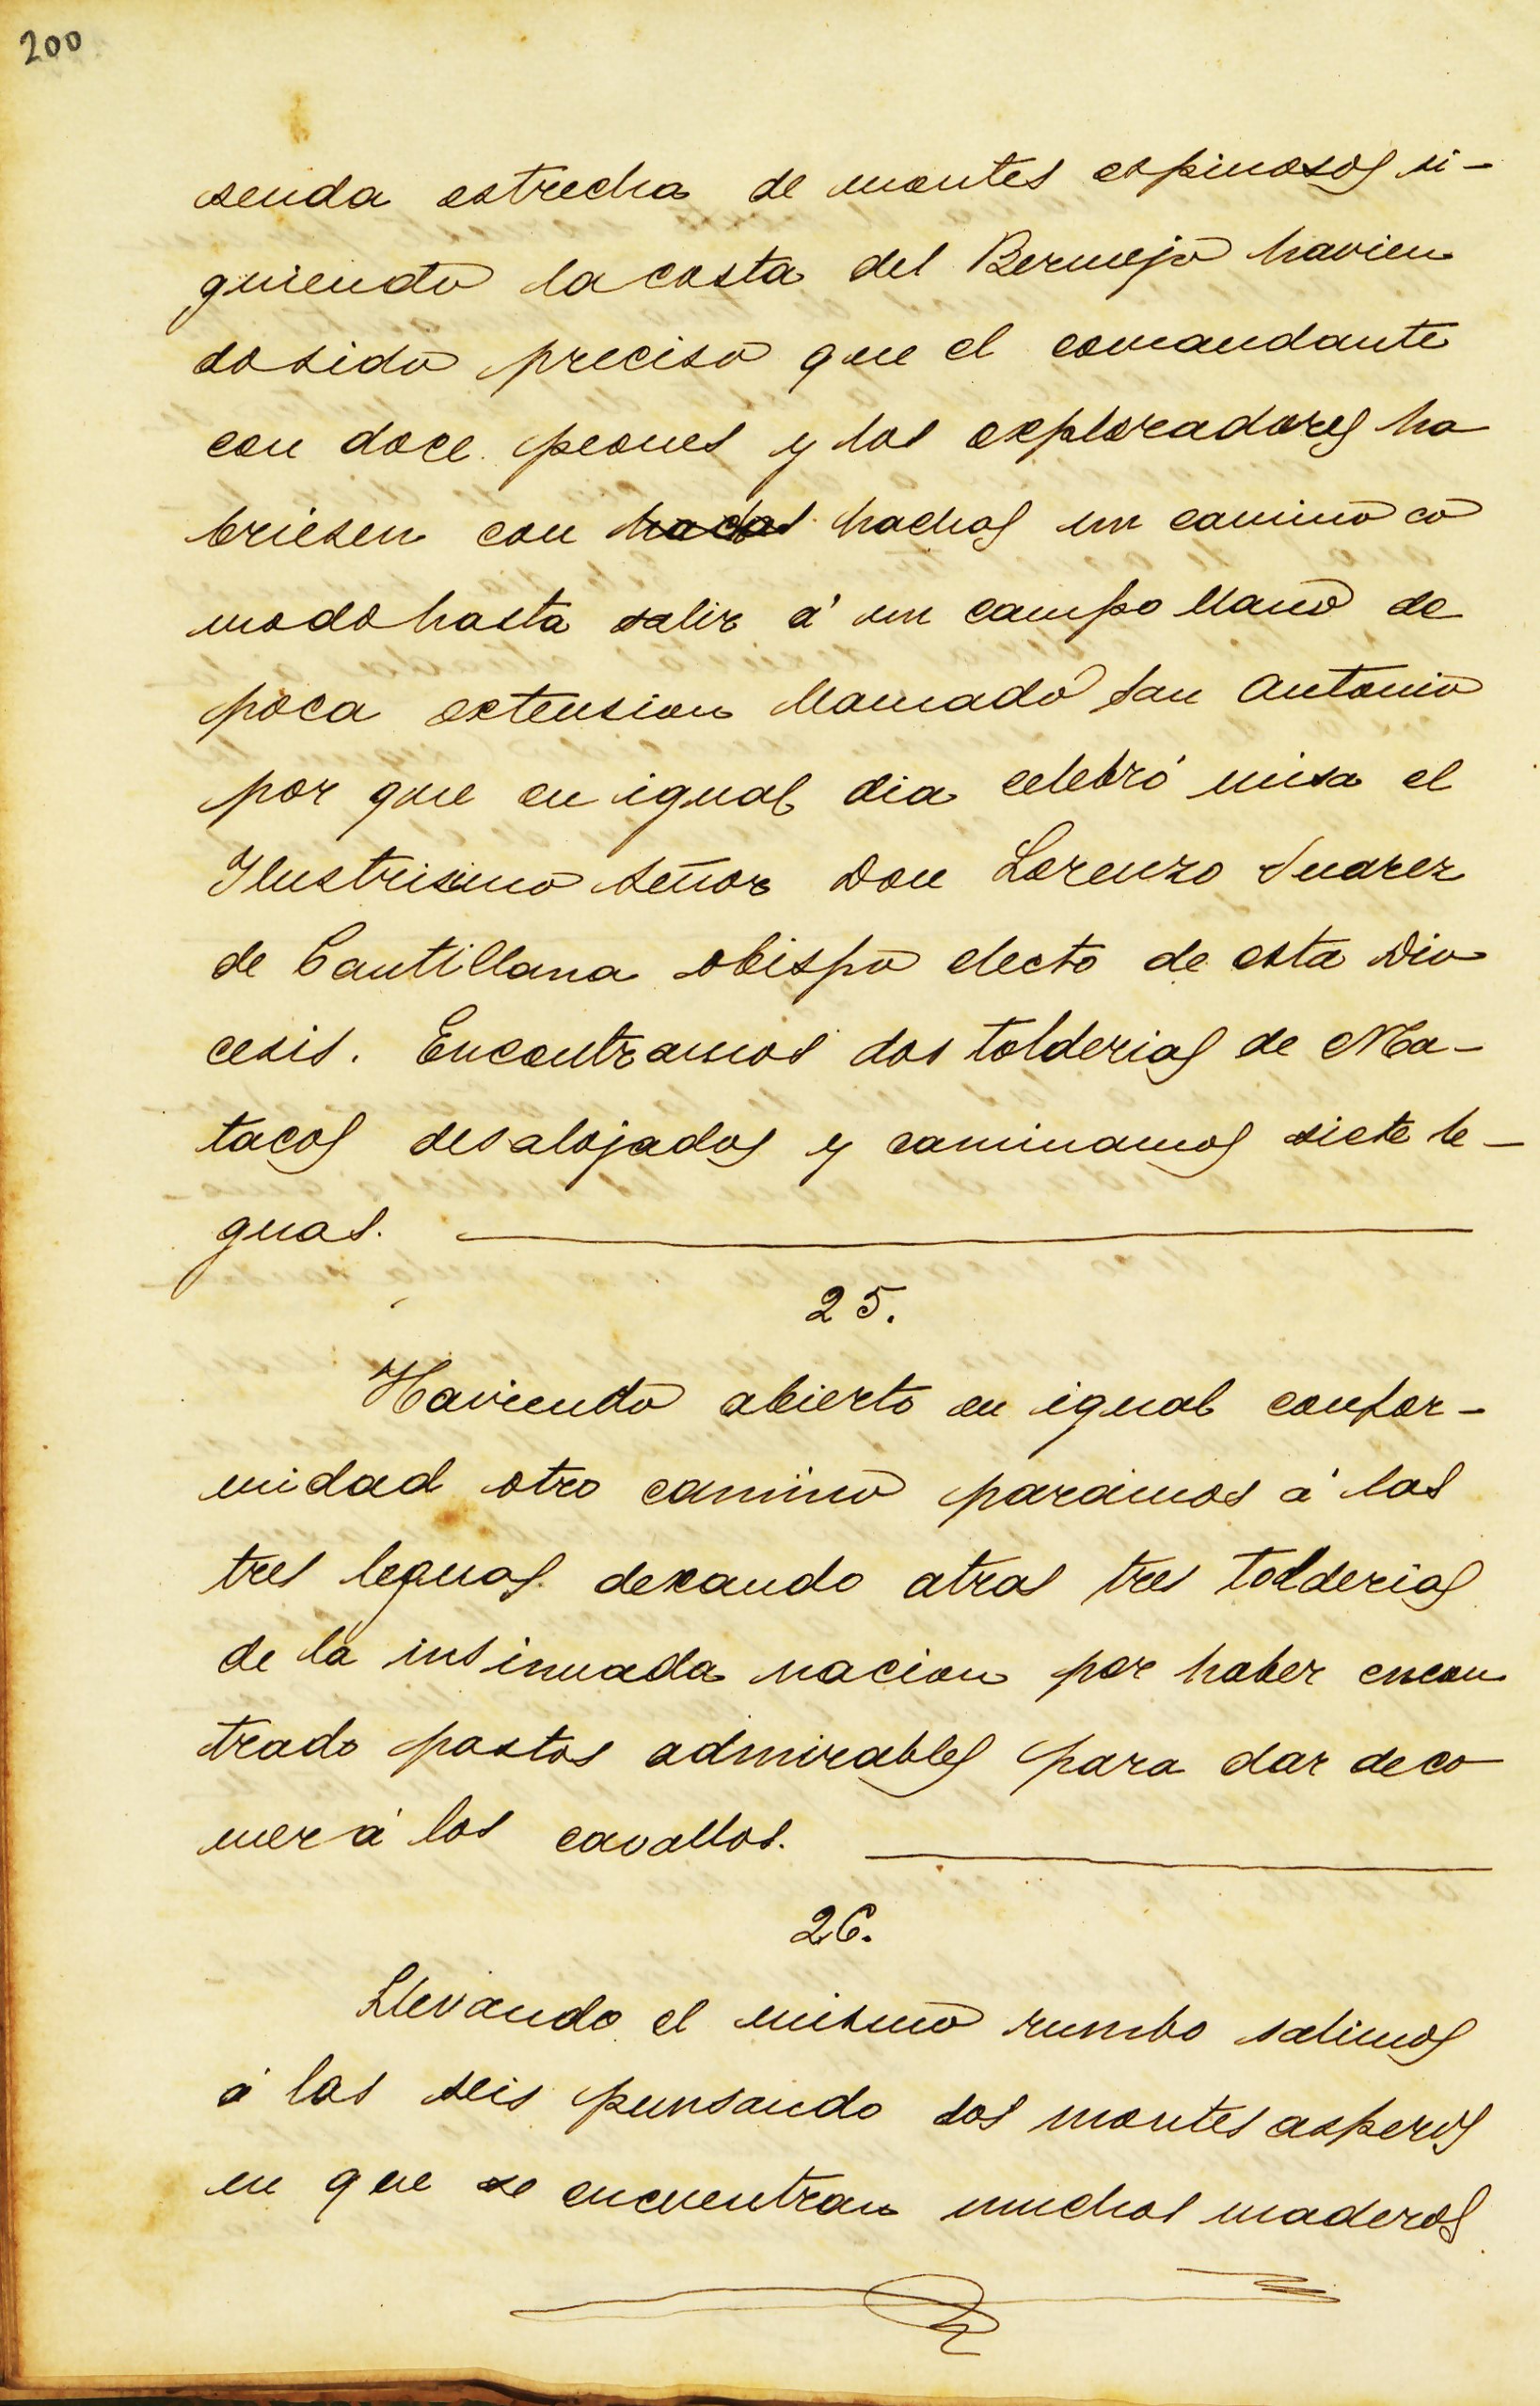 200
senda estrecha de montes espinosos si-
guiendo la costa del Bermejo havien
do sido preciso que el comandante
con doce peones y los exploradores ha
briesen con hachas un camino co
modo hasta salir á un campo llano de
poca extension llamado San Antonio
por que en igual dia celebró misa el
Ilustrisimo Señor Don Lorenzo Suarez
de Cantillana obispo electo de esta Dio
cesis. Encontramos dos tolderias de Ma-
tacos desalojados y caminamos siete le-
guas.
25.
Haviendo abierto en igual confor-
midad otro camino parámos á las
tres leguas dexando atras tres tolderias
de la insinuada nacion por haber encon
trado pastos admirables para dar de co
mer á los cavallos.
26.
Llevando el mismo rumbo salimos
á las seis punsando los montes asperos
en que se encuentran muchos maderos